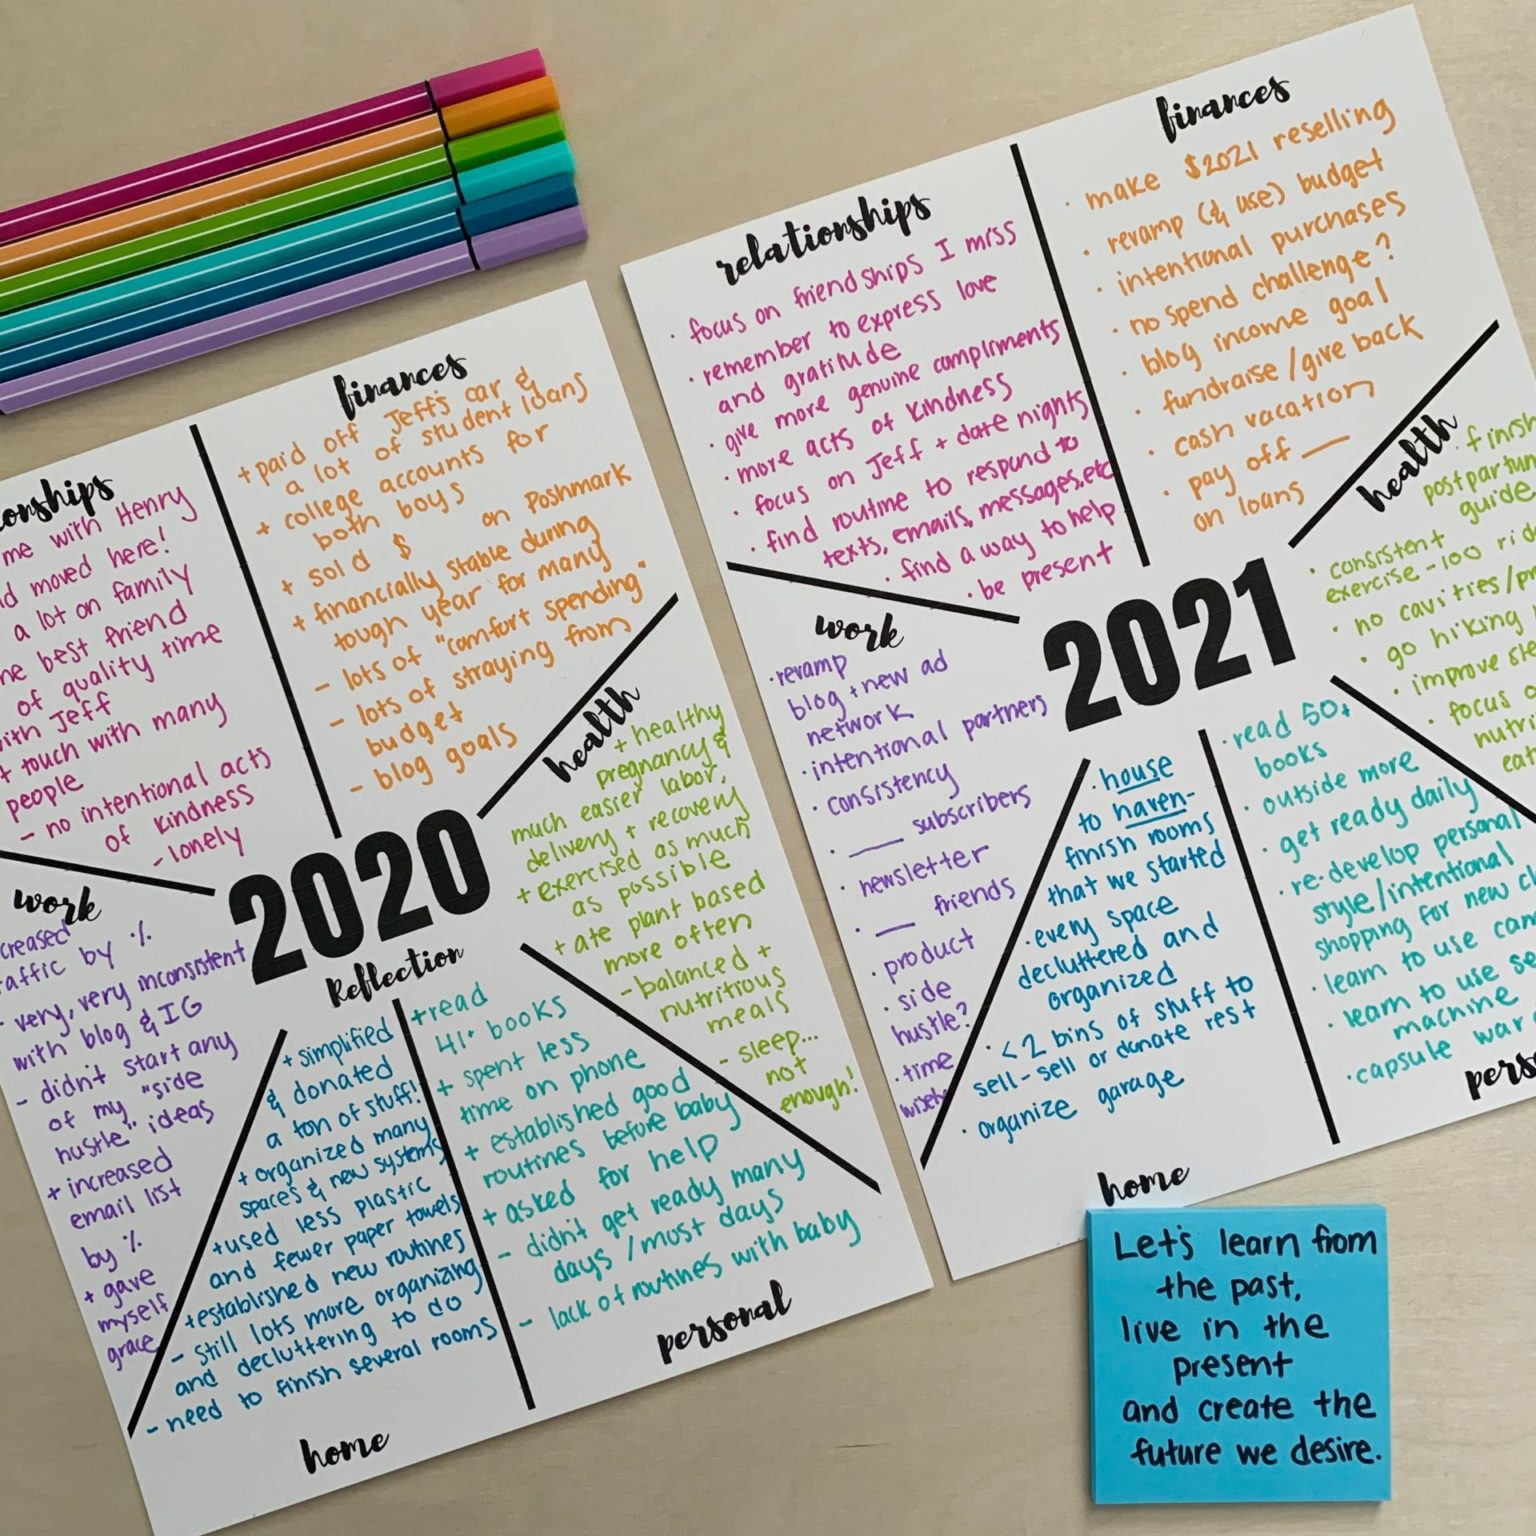 finances
+ paid off Jeff's car &
a lot of student loans
+ college accounts for
both boys
+ sold $ on Poshmark
+ financially stable during
tough year for many
- lots of "comfort spending"
- lots of straying from
budget
- blog goals
me with Henry
moved here!
a lot on family
best friend
of quality time
with Jeff
touch with many
people
- no intentional acts
of kindness
- lonely
health
+ healthy
pregnancy &
much easier labor,
delivery + recovery
+ exercised as much
as possible
+ ate plant based
more often
- balanced +
nutritious
meals
- sleep...
not
enough!
2020
Reflection
work
by %
- very, very inconsistent
with blog & IG
- didn't start any
of my "side
hustle" ideas
+ increased
email list
by %
+ gave
myself
grace
+ simplified
& donated
a ton of stuff!
+ organized many
spaces & new systems
+ used less plastic
and fewer paper towels
+ established new routines
- still lots more organizing
and decluttering to do
- need to finish several rooms
home
+ read
41+ books
+ spent less
time on phone
+ established good
routines before baby
+ asked for help
- didn't get ready many
days / most days
- lack of routines with baby
personal
relationships
· focus on friendships I miss
· remember to express love
and gratitude
· give more genuine compliments
· more acts of kindness
· focus on Jeff + date nights
· find routine to respond to
texts, emails, messages, etc
· find a way to help
· be present
finances
· make $2021 reselling
· revamp (& use) budget
· intentional purchases
· no spend challenge?
· blog income goal
· fundraise / give back
· cash vacation
· pay off __
on loans
health
· finish
guide
· consistent
exercise - 100
· no cavities/
· go hiking
· improve
· focus
2021
work
· revamp
blog + new ad
network
· intentional partners
· consistency
· __ subscribers
· newsletter
· __ friends
· product
· side
hustle?
· time
wisely
· house
to haven -
finish rooms
that we started
· every space
decluttered and
organized
· < 2 bins of stuff to
sell - sell or donate rest
· organize garage
home
· read 50+
books
· outside more
· get ready daily
· re-develop personal
style/intentional
shopping for new
· learn to use
· learn to use
machine
· capsule
Let's learn from
the past,
live in the
present
and create the
future we desire.